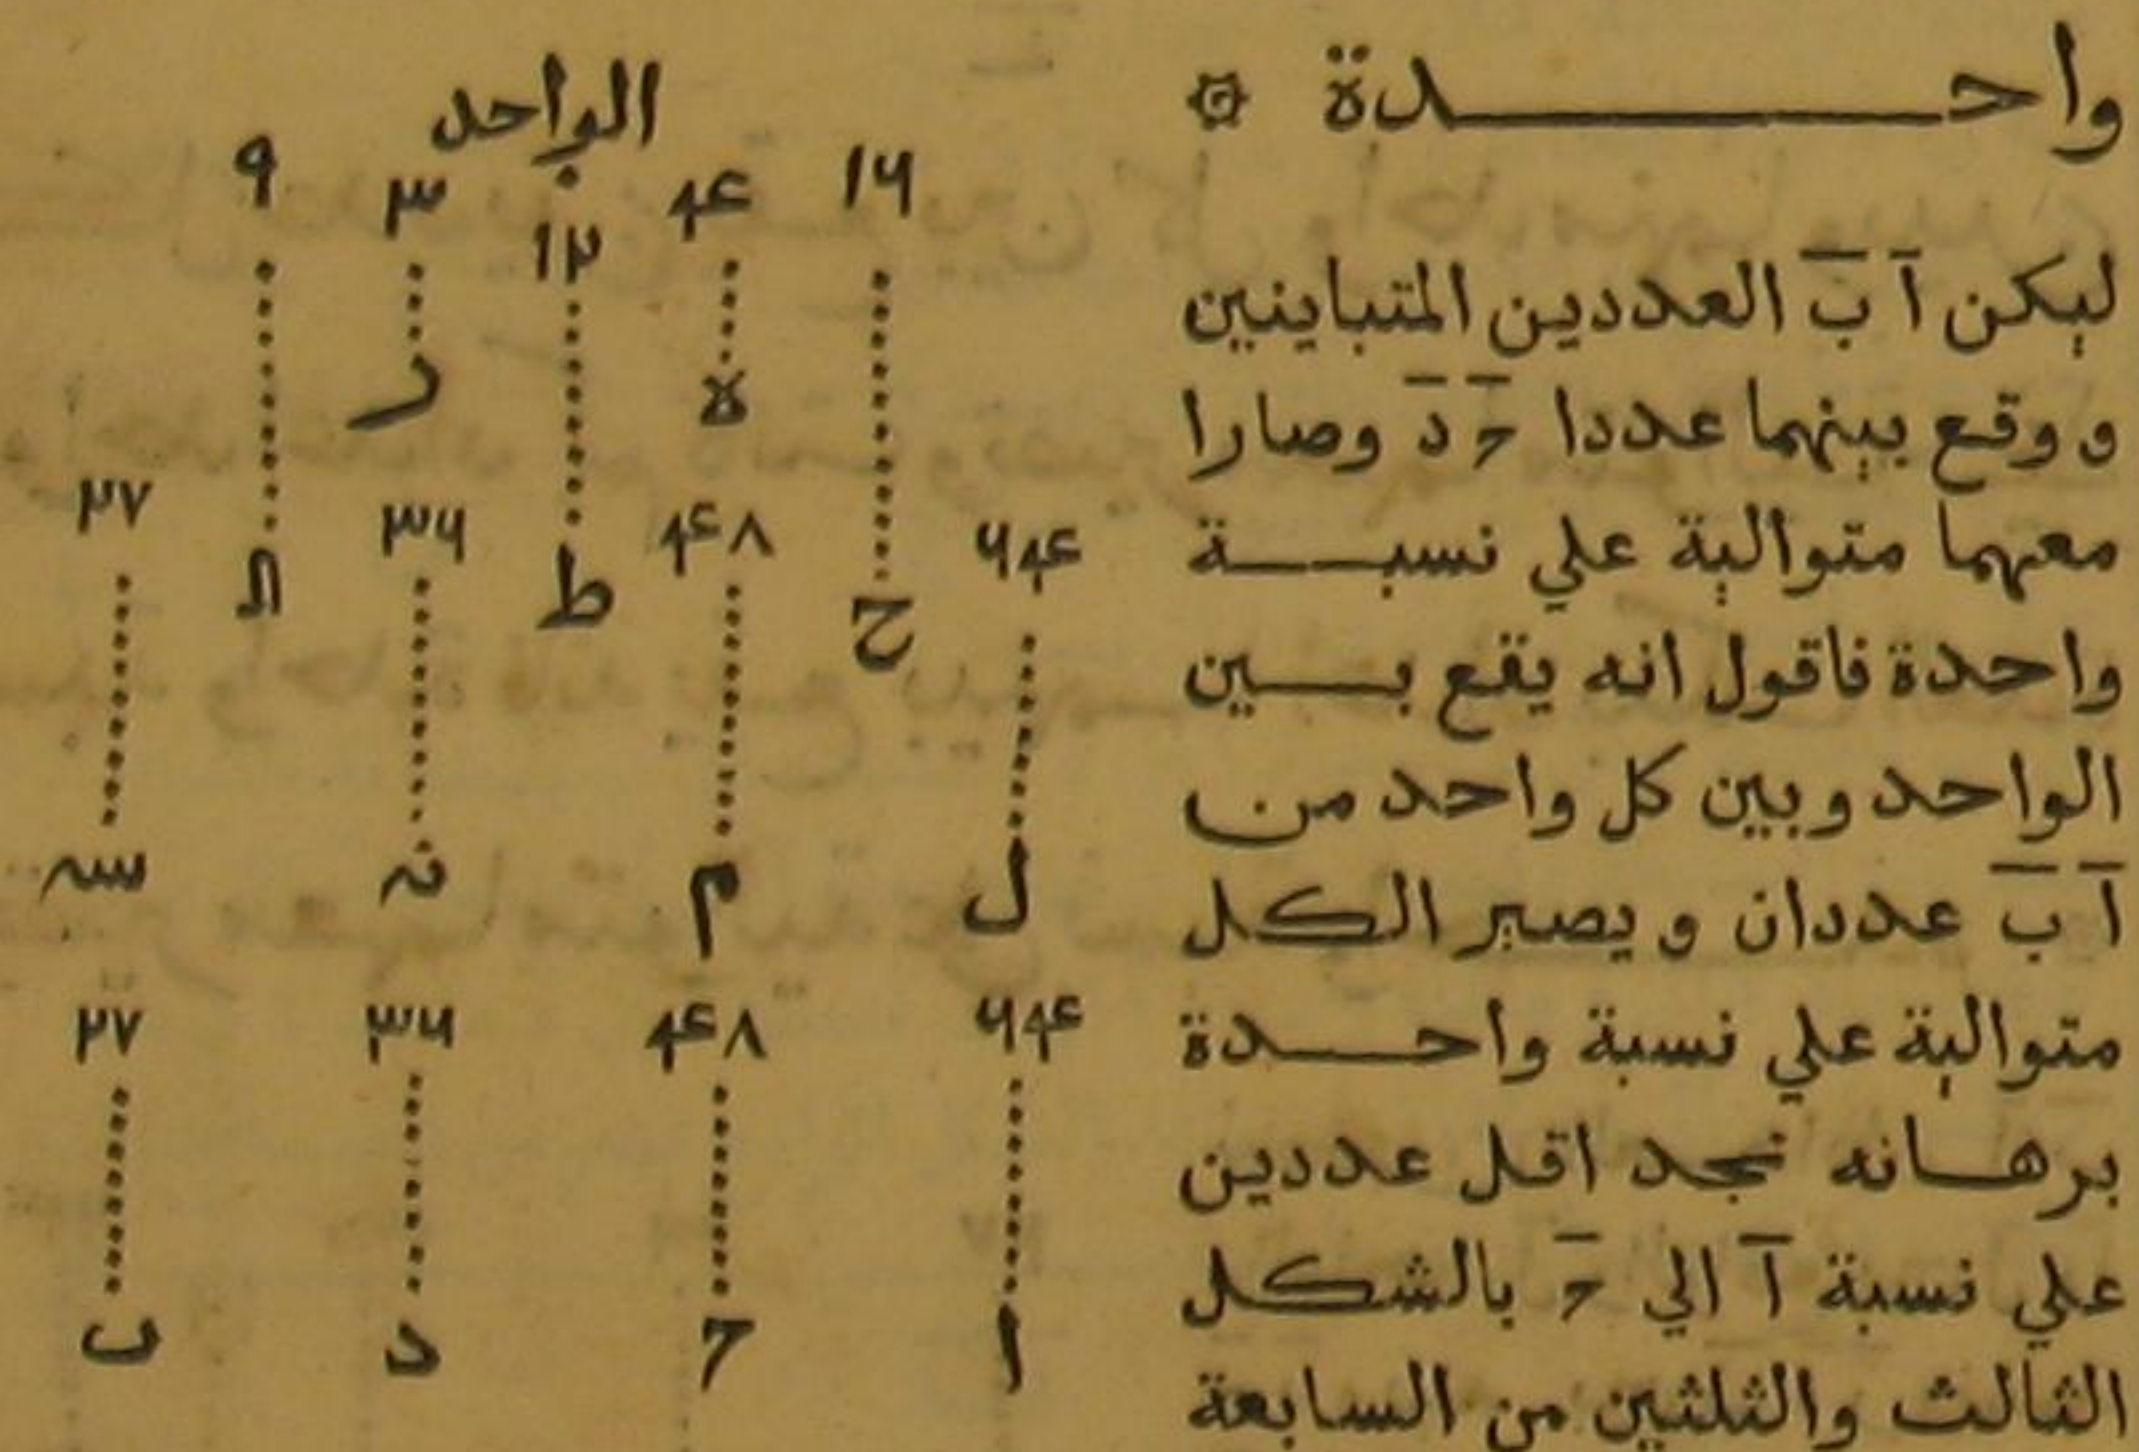 واحدة
ليكن آ بَ العددين المتباينين
و وقع بينهما عددا حَ دَ وصارا
معهما متوالية علي نسبة
واحدة فاقول انه يقع بين
الواحد وبين كل واحد من
آ بَ عددان و يصير الكل
متوالية علي نسبة واحدة
برهانه نجد اقل عددين
علي نسبة آ الي حَ بالشكل
الثالث والثلثين من السابعة
الواحد
۱۶ ۴ ۳ ۹
۱۲
ه ر
۶۴ ۴۸ ۳۶ ۲۷
ح ط ك
ل م ن س
۶۴ ۴۸ ۳۶ ۲۷
ا ح د ب